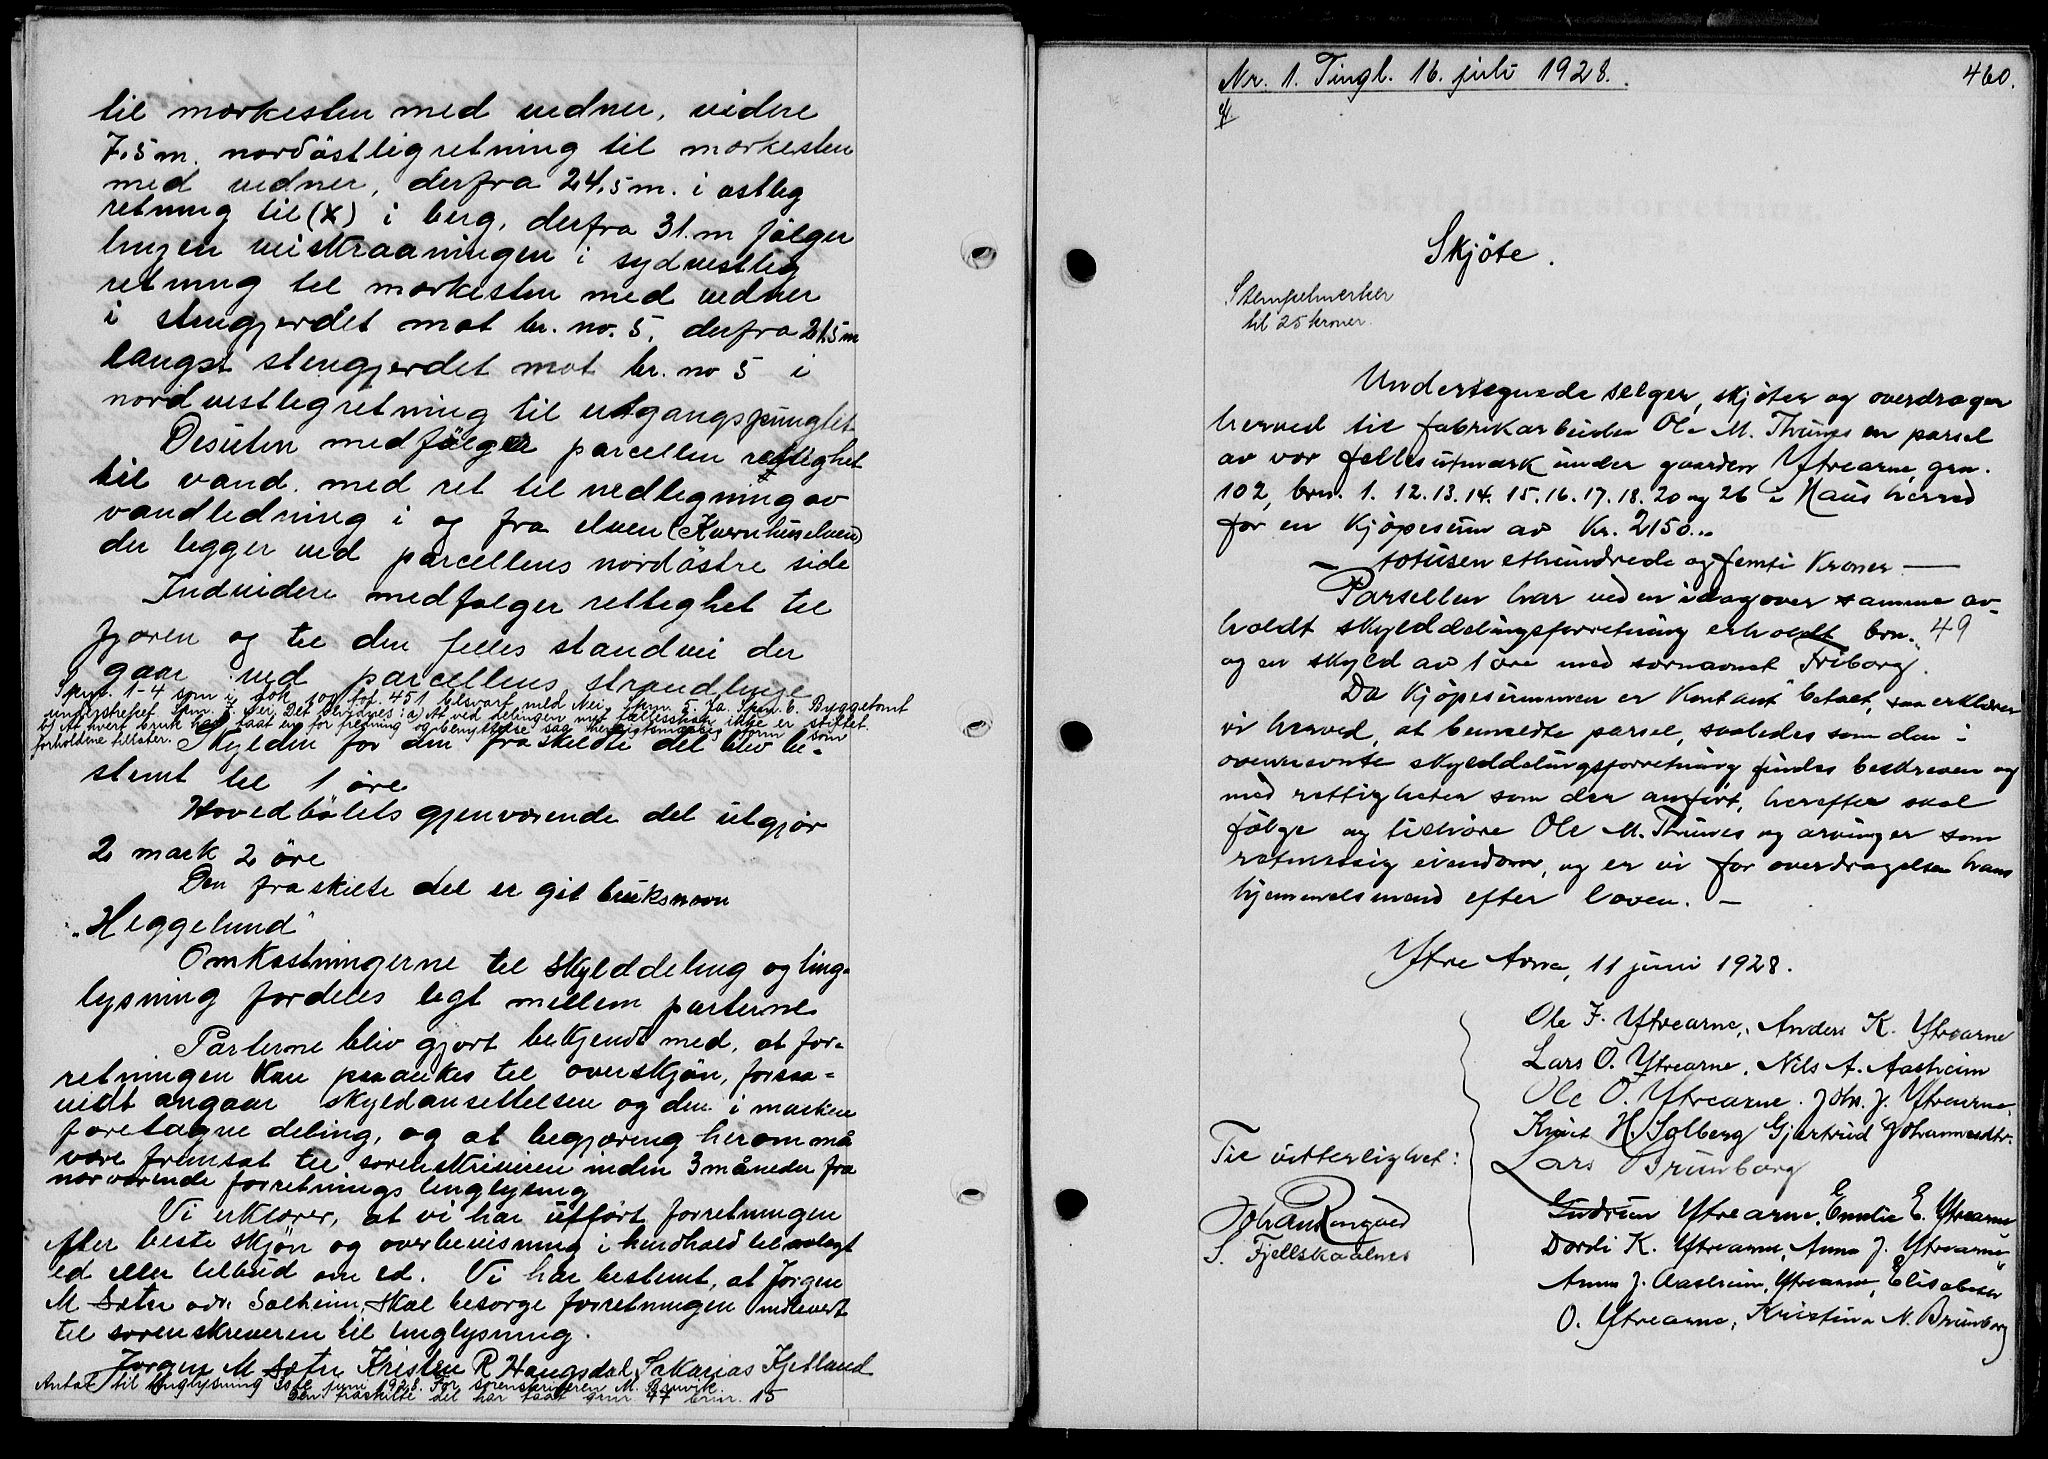 til mærkesten med vedner, videre
7,5 m. nordöstlig retning til mærkesten
med vedner, derfra 24,5 m. i østleg
retning til (X) i berg, derfra 31. m følger
linjen veiskraaningen i sydvestleg
retning til mærkesten med vedner
i stengjerdet mot br. no. 5, derfra 21,5 m
langst stengjerdet mot br. no 5 i
nordvestlegretning til utgangspungtet
Desuten medfølger parcellen rettighet
til vand. med ret til nedlegning av
vandledning i og fra elven (Kvernhuselven)
der legger ved parcellens nordöstre side
Indvidere medfølger rettighet til
fjæren og til den felles standvei der
gaar ved parcellens strandlinje
Spm. 1-4 som i bok fol. 451 besvart med Nei, Spm. 5. Ja. Spm. 6. Byggetomt
understreket Spm. 7. Nei. Det bevidnes: a) At ved delingen nyt fællesskap ikke er stiftet.
b) At hvert bruk har faat saa hensigtsmæssig form som
forholdene tillater.
Skylden for den fraskeldte del blev be-
stemt til 1 öre
Hovedbølets gjenværende del utgjør
2 mark 2 öre
Den fraskilte del er git bruksnavn
„Heggelund"
Omkostningerne til skylddeling og ting-
lysning fordeles legt mellem parterne
Parterne blev gjort bekjendt med, at for-
retningen kan paaankes til overskjøn, forsaa-
vidt angaar skyldansettelsen og den i marken
foretagne deling, og at begjæring herom må
være fremsat til sorenskriveren inden 3 måneder fra
nærværende forretnings tinglysing
Vi erklærer, at vi har utført forretningen
efter beste skjøn og overbevisning i henhold til avlagt
ed eller tilbud om ed. Vi har bestemt, at Jørgen
M Sæter adr. Solheim, skal besørge forretningen indlevert
til sorenskriveren til tinglysning.
Jørgen M Sæter Kristen R Haugsdal, Sakarias Kjetland
Antat til tinglysning 30 juni 1928. For sorenskriveren M. Bruvik.
Den fraskilte del har faat gnr. 47 brnr. 15
Nr. 1. Tingl. 16. juli 1928.
460.
Skjöte.
Stempelmerker
til 25 kroner.
Undertegnede selger, skjøter og overdrager
herved til fabrikarbeider Ole M. Thunes en parsel
av vor fellesutmark under gaarden Ytrearne, grn.
102, brn. 1. 12. 13. 14. 15. 16. 17. 18. 20 og 26 i Haus herred
for en kjøpesum av Kr. 2150..
— totusen ethundrede og femti Kroner —
Parsellen har ved en idag over samme av-
holdt skylddelingsforretning erholdt brn. 49
og en skyld av 1 öre med særnavnet „Friborg".
Da kjøpesummen er kontant betalt, saa erklærer
vi herved, at bemeldte parsel, saaledes som den i
ovennevnte skylddelingsforretning findes beskreven og
med rettigheter som der anført, herefter skal
følge og tilhöre Ole M. Thunes og arvinger som
retmessig eiendom, og er vi for overdragelsen hans
hjemmelsmend efter loven. —
Ytre Arna, 11 juni 1928.
Ole F. Ytrearne, Anders K. Ytrearne
Lars O. Ytrearne, Nils A. Aasheim
Ole O. Ytrearne. Johs. J. Ytrearne,
Knut H. Solberg Gjertrud Johannesdtr.
Lars Brunborg
Til vitterlighet:
Johan Ringved
S. Fjellskaalnes
Gudrun Ytrearne, Emilie E. Ytrearne
Dordi K. Ytrearne, Anna J. Ytrearne
Anna J. Aasheim, Ytrearne, Elisabeth
O. Ytrearne, Kristina N. Brunborg